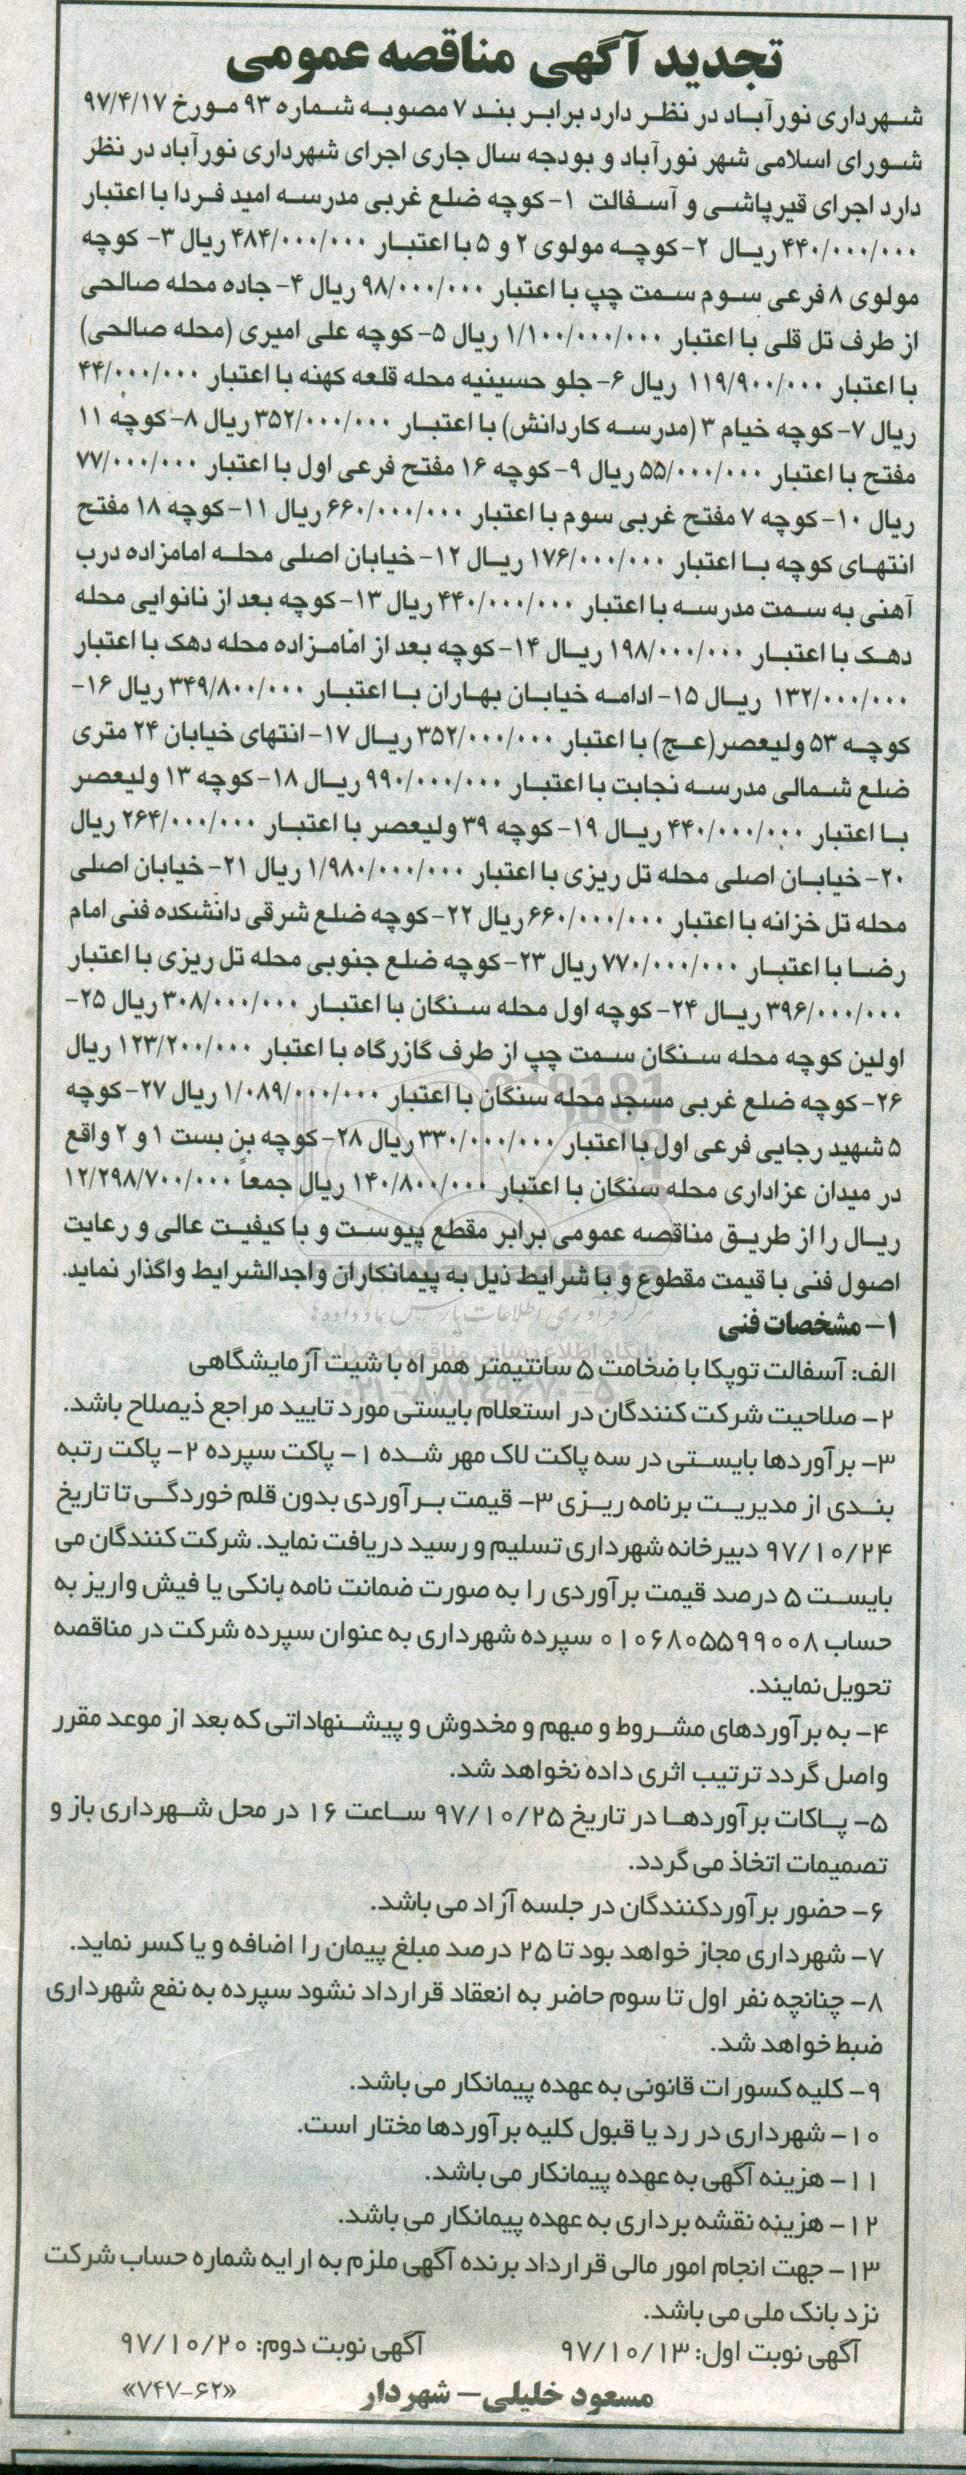 تجدید آگهی مناقصه عمومی
شهرداری نورآباد در نظر دارد برابر بند ۷ مصوبه شماره ۹۳ مورخ ۹۷/۴/۱۷
شورای اسلامی شهر نورآباد و بودجه سال جاری اجرای شهرداری نورآباد در نظر
دارد اجرای قیرپاشی و آسفالت ۱- کوچه ضلع غربی مدرسه امید فردا با اعتبار
۴۴۰/۰۰۰/۰۰۰ ریال ۲- کوچه مولوی ۲ و ۵ با اعتبار ۴۸۴/۰۰۰/۰۰۰ ریال ۳- کوچه
مولوی ۸ فرعی سوم سمت چپ با اعتبار ۹۸/۰۰۰/۰۰۰ ریال ۴- جاده محله صالحی
از طرف تل قلی با اعتبار ۱/۱۰۰/۰۰۰/۰۰۰ ریال ۵- کوچه علی امیری (محله صالحی)
با اعتبار ۱۱۹/۹۰۰/۰۰۰ ریال ۶- جلو حسینیه محله قلعه کهنه با اعتبار ۴۴/۰۰۰/۰۰۰
ریال ۷- کوچه خیام ۳ (مدرسه کاردانش) با اعتبار ۳۵۲/۰۰۰/۰۰۰ ریال ۸- کوچه ۱۱
مفتح با اعتبار ۵۵/۰۰۰/۰۰۰ ریال ۹- کوچه ۱۶ مفتح فرعی اول با اعتبار ۷۷/۰۰۰/۰۰۰
ریال ۱۰- کوچه ۷ مفتح غربی سوم با اعتبار ۶۶۰/۰۰۰/۰۰۰ ریال ۱۱- کوچه ۱۸ مفتح
انتهای کوچه با اعتبار ۱۷۶/۰۰۰/۰۰۰ ریال ۱۲- خیابان اصلی محله امامزاده درب
آهنی به سمت مدرسه با اعتبار ۴۴۰/۰۰۰/۰۰۰ ریال ۱۳- کوچه بعد از نانوایی محله
دهک با اعتبار ۱۹۸/۰۰۰/۰۰۰ ریال ۱۴- کوچه بعد از امامزاده محله دهک با اعتبار
۱۳۲/۰۰۰/۰۰۰ ریال ۱۵- ادامه خیابان بهاران با اعتبار ۳۴۹/۸۰۰/۰۰۰ ریال ۱۶-
کوچه ۵۳ ولیعصر(عج) با اعتبار ۳۵۲/۰۰۰/۰۰۰ ریال ۱۷- انتهای خیابان ۲۴ متری
ضلع شمالی مدرسه نجابت با اعتبار ۹۹۰/۰۰۰/۰۰۰ ریال ۱۸- کوچه ۱۳ ولیعصر
با اعتبار ۴۴۰/۰۰۰/۰۰۰ ریال ۱۹- کوچه ۳۹ ولیعصر با اعتبار ۲۶۴/۰۰۰/۰۰۰ ریال
۲۰- خیابان اصلی محله تل ریزی با اعتبار ۱/۹۸۰/۰۰۰/۰۰۰ ریال ۲۱- خیابان اصلی
محله تل خزانه با اعتبار ۶۶۰/۰۰۰/۰۰۰ ریال ۲۲- کوچه ضلع شرقی دانشکده فنی امام
رضا با اعتبار ۷۷۰/۰۰۰/۰۰۰ ریال ۲۳- کوچه ضلع جنوبی محله تل ریزی با اعتبار
۳۹۶/۰۰۰/۰۰۰ ریال ۲۴- کوچه اول محله سنگان با اعتبار ۳۰۸/۰۰۰/۰۰۰ ریال ۲۵-
اولین کوچه محله سنگان سمت چپ از طرف گازرگاه با اعتبار ۱۲۳/۲۰۰/۰۰۰ ریال
۲۶- کوچه ضلع غربی مسجد محله سنگان با اعتبار ۱/۰۸۹/۰۰۰/۰۰۰ ریال ۲۷- کوچه
۵ شهید رجایی فرعی اول با اعتبار ۳۳۰/۰۰۰/۰۰۰ ریال ۲۸- کوچه بن بست ۱ و ۲ واقع
در میدان عزاداری محله سنگان با اعتبار ۱۴۰/۸۰۰/۰۰۰ ریال جمعاً ۱۲/۲۹۸/۷۰۰/۰۰۰
ریال را از طریق مناقصه عمومی برابر مقطع پیوست و با کیفیت عالی و رعایت
اصول فنی با قیمت مقطوع و با شرایط ذیل به پیمانکاران واجدالشرایط واگذار نماید.
۱- مشخصات فنی
الف: آسفالت توپکا با ضخامت ۵ سانتیمتر همراه با شیت آزمایشگاهی
۲- صلاحیت شرکت کنندگان در استعلام بایستی مورد تایید مراجع ذیصلاح باشد.
۳- برآوردها بایستی در سه پاکت لاک مهر شده ۱- پاکت سپرده ۲- پاکت رتبه
بندی از مدیریت برنامه ریزی ۳- قیمت برآوردی بدون قلم خوردگی تا تاریخ
۹۷/۱۰/۲۴ دبیرخانه شهرداری تسلیم و رسید دریافت نماید. شرکت کنندگان می
بایست ۵ درصد قیمت برآوردی را به صورت ضمانت نامه بانکی یا فیش واریز به
حساب ۰۱۰۶۸۰۵۵۹۹۰۰۸ سپرده شهرداری به عنوان سپرده شرکت در مناقصه
تحویل نمایند.
۴- به برآوردهای مشروط و مبهم و مخدوش و پیشنهاداتی که بعد از موعد مقرر
واصل گردد ترتیب اثری داده نخواهد شد.
۵- پاکات برآوردها در تاریخ ۹۷/۱۰/۲۵ ساعت ۱۶ در محل شهرداری باز و
تصمیمات اتخاذ می گردد.
۶- حضور برآوردکنندگان در جلسه آزاد می باشد.
۷- شهرداری مجاز خواهد بود تا ۲۵ درصد مبلغ پیمان را اضافه و یا کسر نماید.
۸- چنانچه نفر اول تا سوم حاضر به انعقاد قرارداد نشود سپرده به نفع شهرداری
ضبط خواهد شد.
۹- کلیه کسورات قانونی به عهده پیمانکار می باشد.
۱۰- شهرداری در رد یا قبول کلیه برآوردها مختار است.
۱۱- هزینه آگهی به عهده پیمانکار می باشد.
۱۲- هزینه نقشه برداری به عهده پیمانکار می باشد.
۱۳- جهت انجام امور مالی قرارداد برنده آگهی ملزم به ارایه شماره حساب شرکت
نزد بانک ملی می باشد.
آگهی نوبت اول: ۹۷/۱۰/۱۳ آگهی نوبت دوم: ۹۷/۱۰/۲۰
مسعود خلیلی- شهردار «۷۴۷-۶۲»